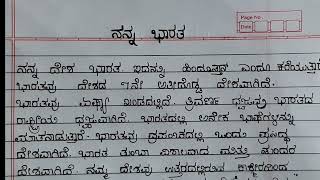 Page No
Date
ನನ್ನ ಭಾರತ
ನನ್ನ ದೇಶ ಭಾರತ ಇದನ್ನು ಹಿಂದೂಸ್ತಾನ್ ಎಂದೂ ಕರೆಯುತ್ತಾರೆ
ಭಾರತವು ದೇಶದ 7ನೇ ಅತಿದೊಡ್ಡ ದೇಶವಾಗಿದೆ.
ಭಾರತವು ಏಷ್ಯಾ ಖಂಡದಲ್ಲಿದೆ. ತ್ರಿವರ್ಣ ಧ್ವಜವು ಭಾರತದ
ರಾಷ್ಟ್ರೀಯ ಧ್ವಜವಾಗಿದೆ. ಭಾರತದಲ್ಲಿ ಅನೇಕ ಭಾಷೆಗಳನ್ನು
ಮಾತನಾಡುತ್ತಾರೆ. ಭಾರತವು ಪ್ರಪಂಚದಲ್ಲಿ ಒಂದು ಪ್ರಸಿದ್ಧ
ದೇಶವಾಗಿದೆ. ಭಾರತ ತುಂಬಾ ವಿಶಾಲವಾದ ಮತ್ತು ಸುಂದರ
ದೇಶವಾಗಿದೆ. ನಮ್ಮ ದೇಶವು ಉತ್ತರದಲ್ಲಿರುವ ಕಾಶ್ಮೀರದಿಂದ